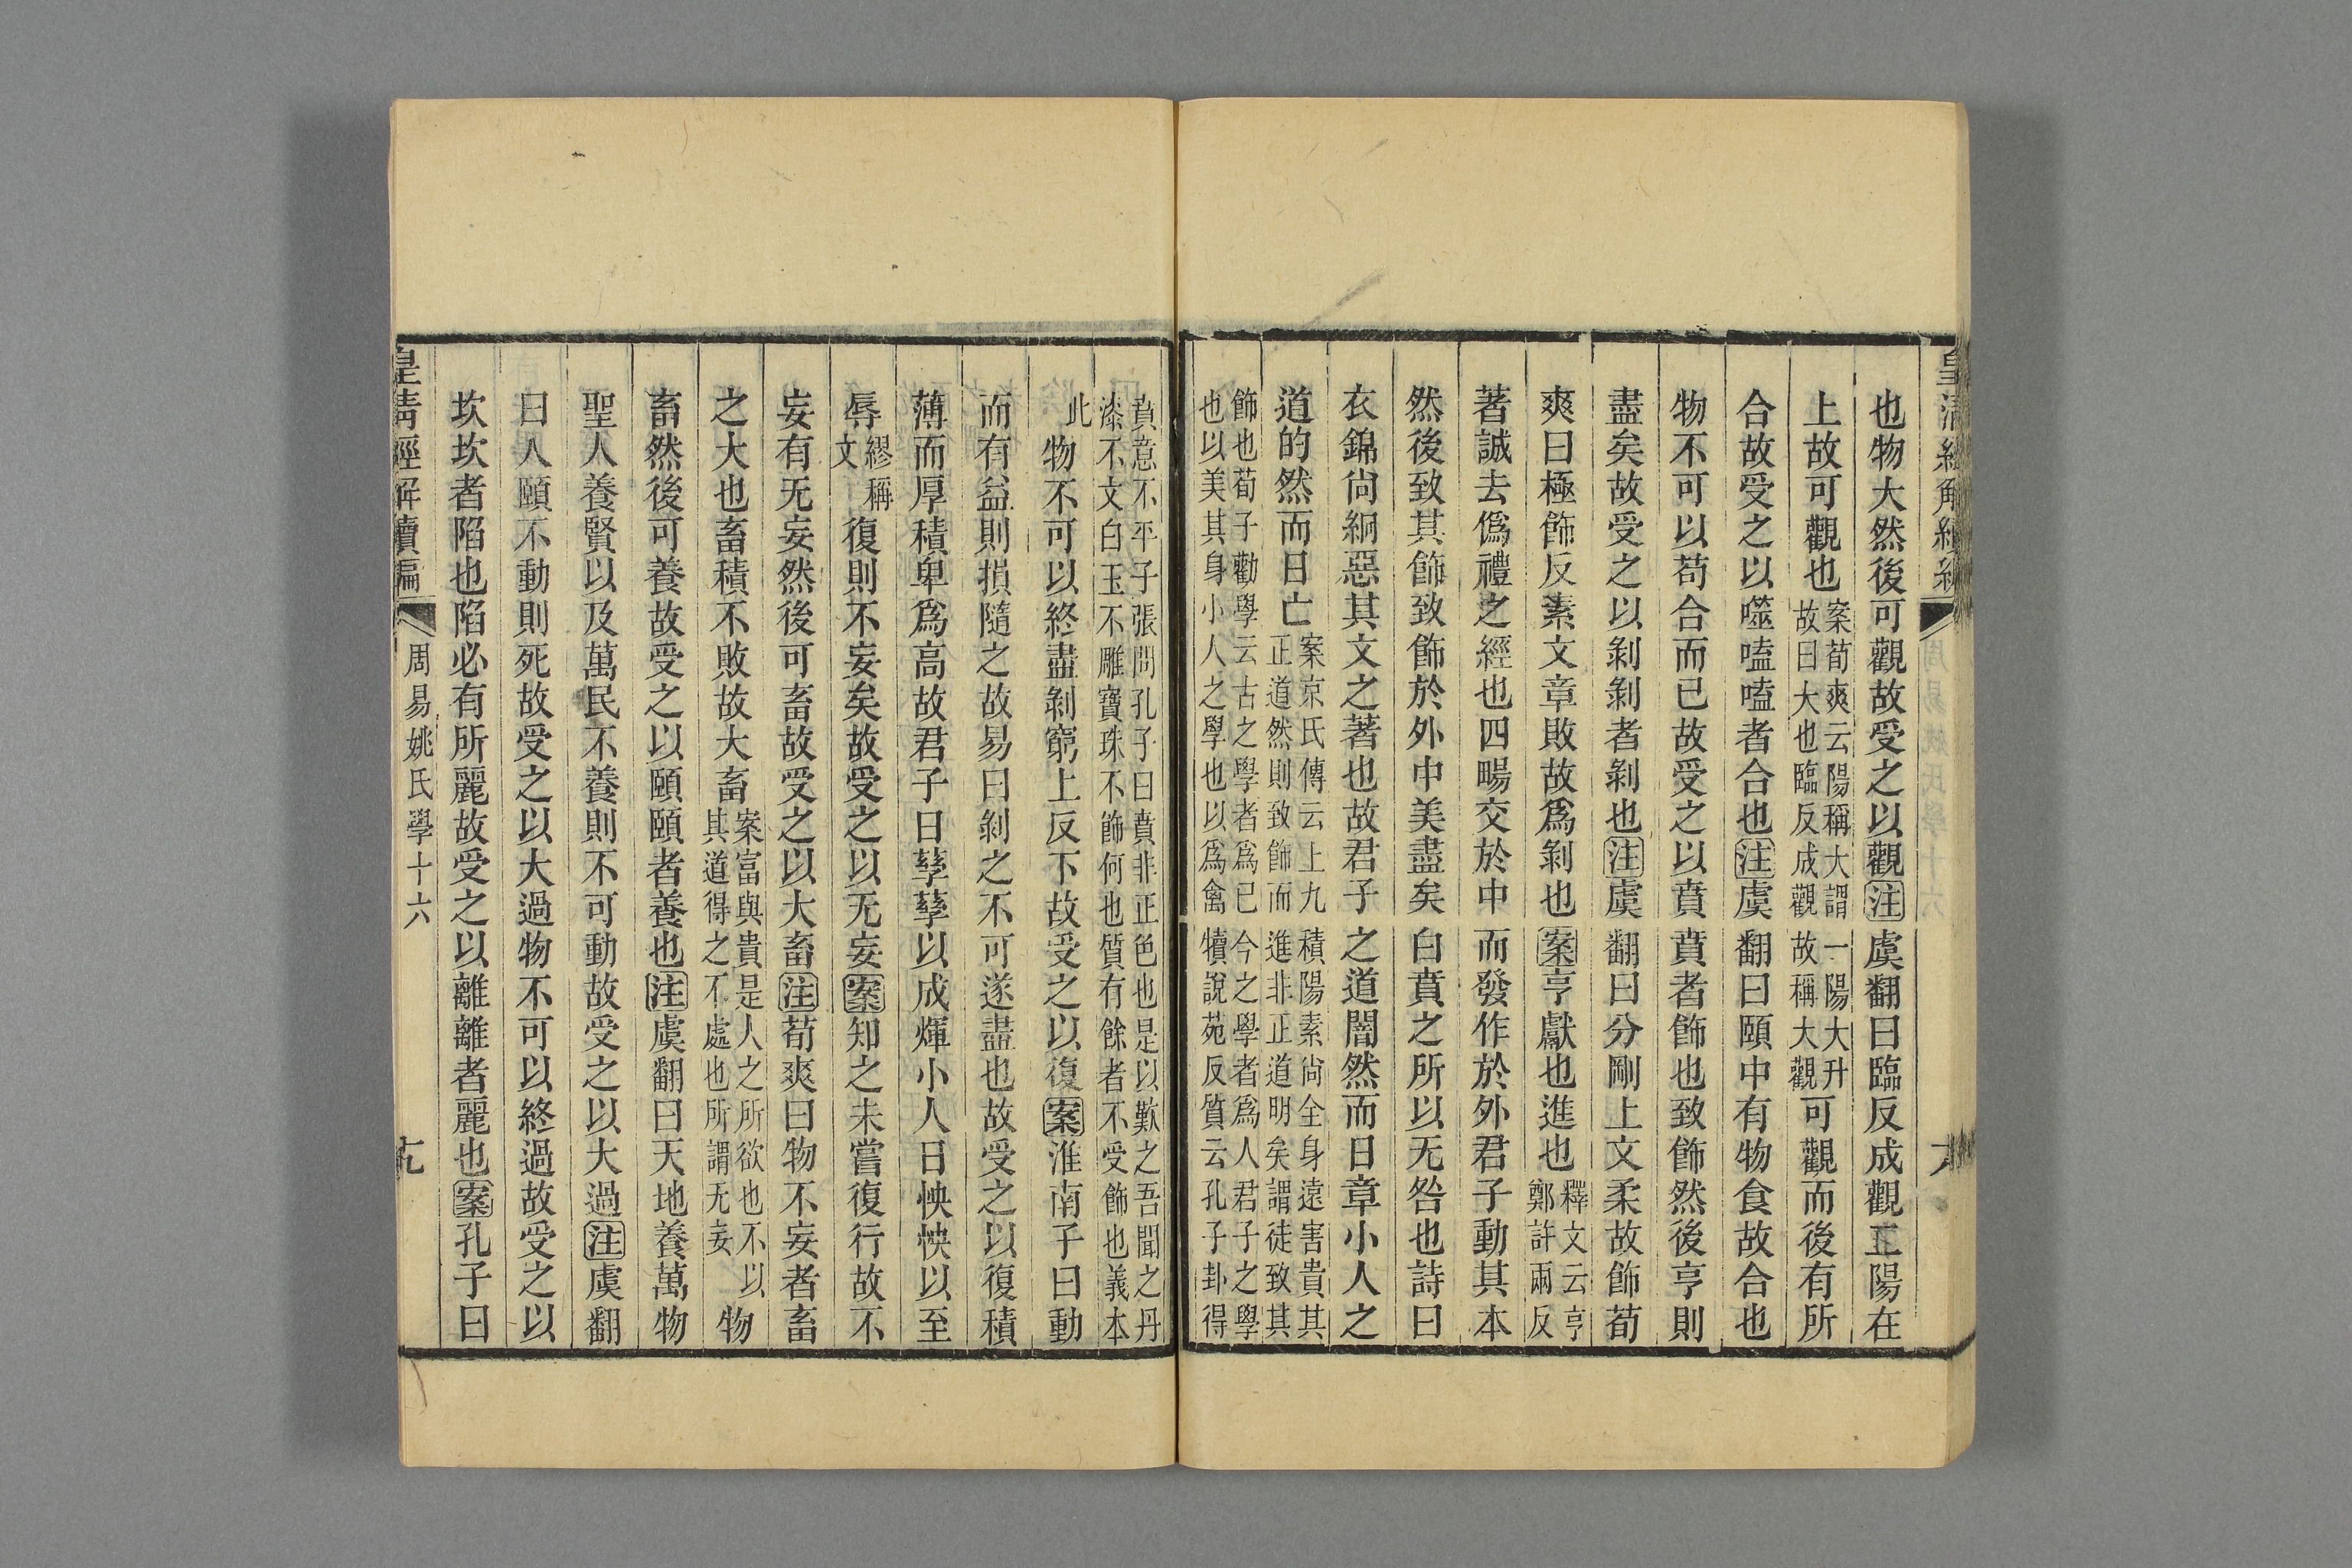 也物大然後可觀故受之以觀注虞翻曰臨反成觀二陽在
上故可觀也案荀爽云陽稱大謂一陽大升故曰大也臨反成觀故稱大觀可觀而後有所
合故受之以噬嗑嗑者合也注虞翻曰頤中有物食故合也
物不可以苟合而已故受之以賁賁者飾也致飾然後亨則
盡矣故受之以剝剝者剝也注虞翻曰分剛上文柔故飾荀
爽曰極飾反素文章敗故爲剝也案亨獻也進也釋文云亨鄭許兩反
著誠去僞禮之經也四暢交於中而發作於外君子動其本
然後致其飾致飾於外中美盡矣白賁之所以无咎也詩曰
衣錦尙絅惡其文之著也故君子之道闇然而日章小人之
道的然而日亡案京氏傳云上九積陽素尙全身遠害貴其正道然則致飾而進非正道明矣謂徒致其
飾也荀子勸學云古之學者爲己今之學者爲人君子之學也以美其身小人之學也以爲禽犢說苑反質云孔子卦得
賁意不平子張問孔子曰賁非正色也是以歎之吾聞之丹漆不文白玉不雕寶珠不飾何也質有餘者不受飾也義本
此物不可以終盡剝窮上反下故受之以復案淮南子曰動
而有益則損隨之故易曰剝之不可遂盡也故受之以復積
薄而厚積卑爲高故君子日孳孳以成煇小人日怏怏以至
辱繆稱文復則不妄矣故受之以无妄案知之未嘗復行故不
妄有无妄然後可畜故受之以大畜注荀爽曰物不妄者畜
之大也畜積不敗故大畜案富與貴是人之所欲也不以其道得之不處也所謂无妄物
畜然後可養故受之以頤頤者養也注虞翻曰天地養萬物
聖人養賢以及萬民不養則不可動故受之以大過注虞翻
曰人頤不動則死故受之以大過物不可以終過故受之以
坎坎者陷也陷必有所麗故受之以離離者麗也案孔子曰
皇清經解續編 周易姚氏學十六